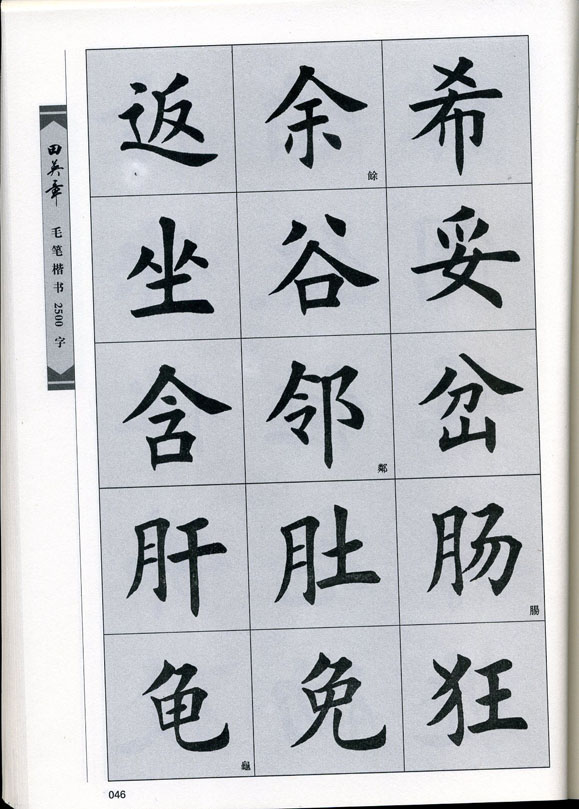 返 余 希
餘
坐 谷 妥
含 邻 岔
鄰
肝 肚 肠
腸
龟 免 狂
龜
田英章
毛笔楷书2500字
046